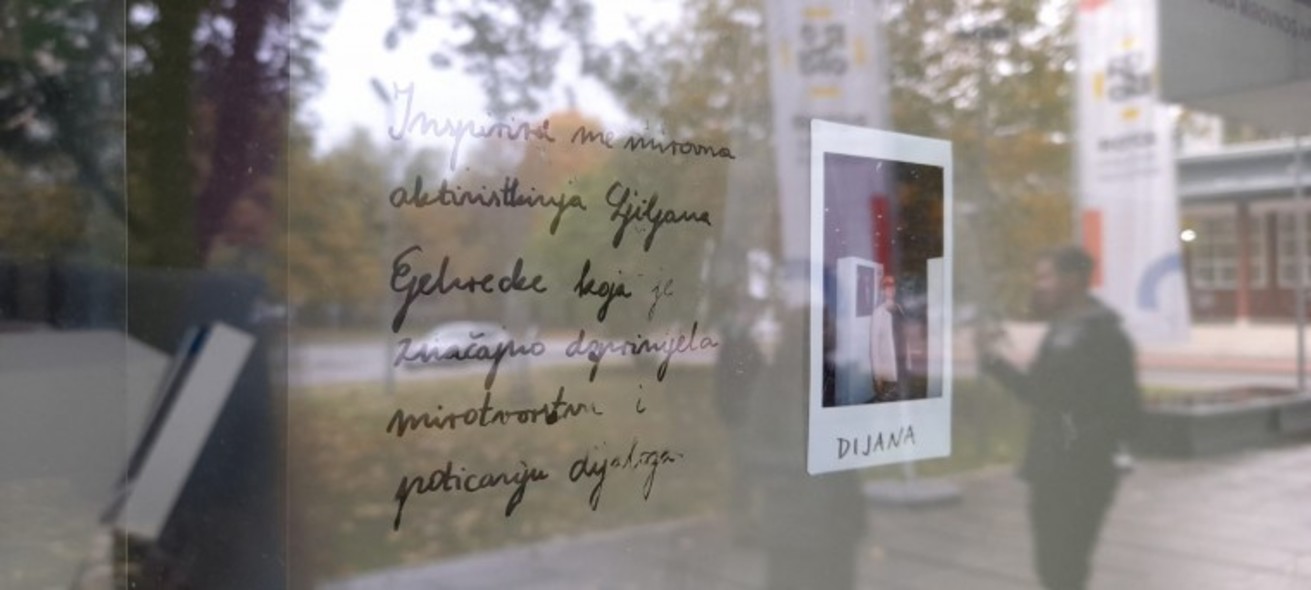 Inspirira me mirovna
aktivistkinja Ljiljana
Gehrecke koja je
značajno doprinijela
mirotvorstvu i
poticanju dijaloga.
DIJANA